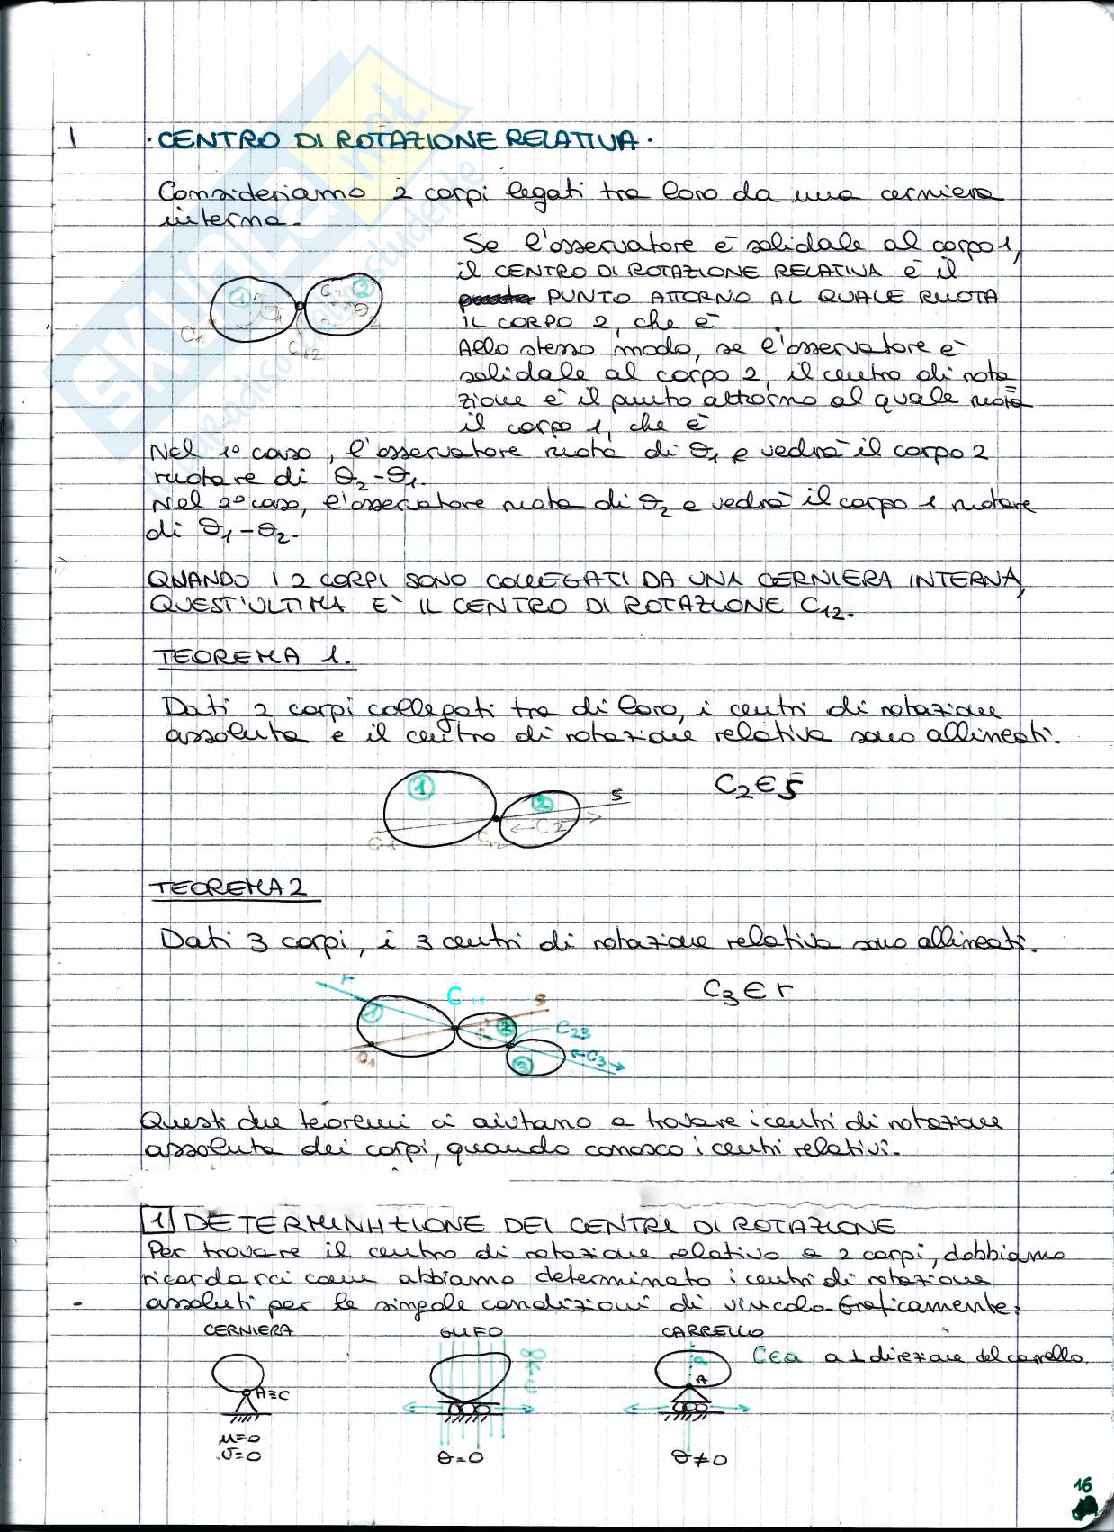 1
· CENTRO DI ROTAZIONE RELATIVA ·
Consideriamo 2 corpi legati tra loro da una cerniera
interna.
Se l'osservatore è solidale al corpo 1,
il CENTRO DI ROTAZIONE RELATIVA è il
PUNTO ATTORNO AL QUALE RUOTA
IL CORPO 2, che è
Allo stesso modo, se l'osservatore è
solidale al corpo 2, il centro di rota
zione è il punto attorno al quale ruota
il corpo 1, che è
1 2
C1 C12
Nel 1° caso, l'osservatore ruota di θ1 e vedrà il corpo 2
ruotare di θ2-θ1.
Nel 2° caso, l'osservatore ruota di θ2 e vedrà il corpo 1 ruotare
di θ1-θ2.
QUANDO I 2 CORPI SONO COLLEGATI DA UNA CERNIERA INTERNA,
QUEST'ULTIMA E' IL CENTRO DI ROTAZIONE C12.
TEOREMA 1.
Dati 2 corpi collegati tra di loro, i centri di rotazione
assoluta e il centro di rotazione relativa sono allineati.
1 2 s
C1 C12 C2
C2 ∈ s
TEOREMA 2
Dati 3 corpi, i 3 centri di rotazione relativa sono allineati.
r
1 2 s
C1 C23
3 C3
C3 ∈ r
Questi due teoremi ci aiutano a trovare i centri di rotazione
assoluta dei corpi, quando conosco i centri relativi.
1 DETERMINAZIONE DEI CENTRI DI ROTAZIONE
Per trovare il centro di rotazione relativo a 2 corpi, dobbiamo
ricordarci come abbiamo determinato i centri di rotazione
assoluti per le singole condizioni di vincolo. Graficamente:
CERNIERA GLIFO CARRELLO
A≡C
a
A
C∈a a ⊥ direzione del carrello.
u=0
v=0
θ=0
θ≠0
16